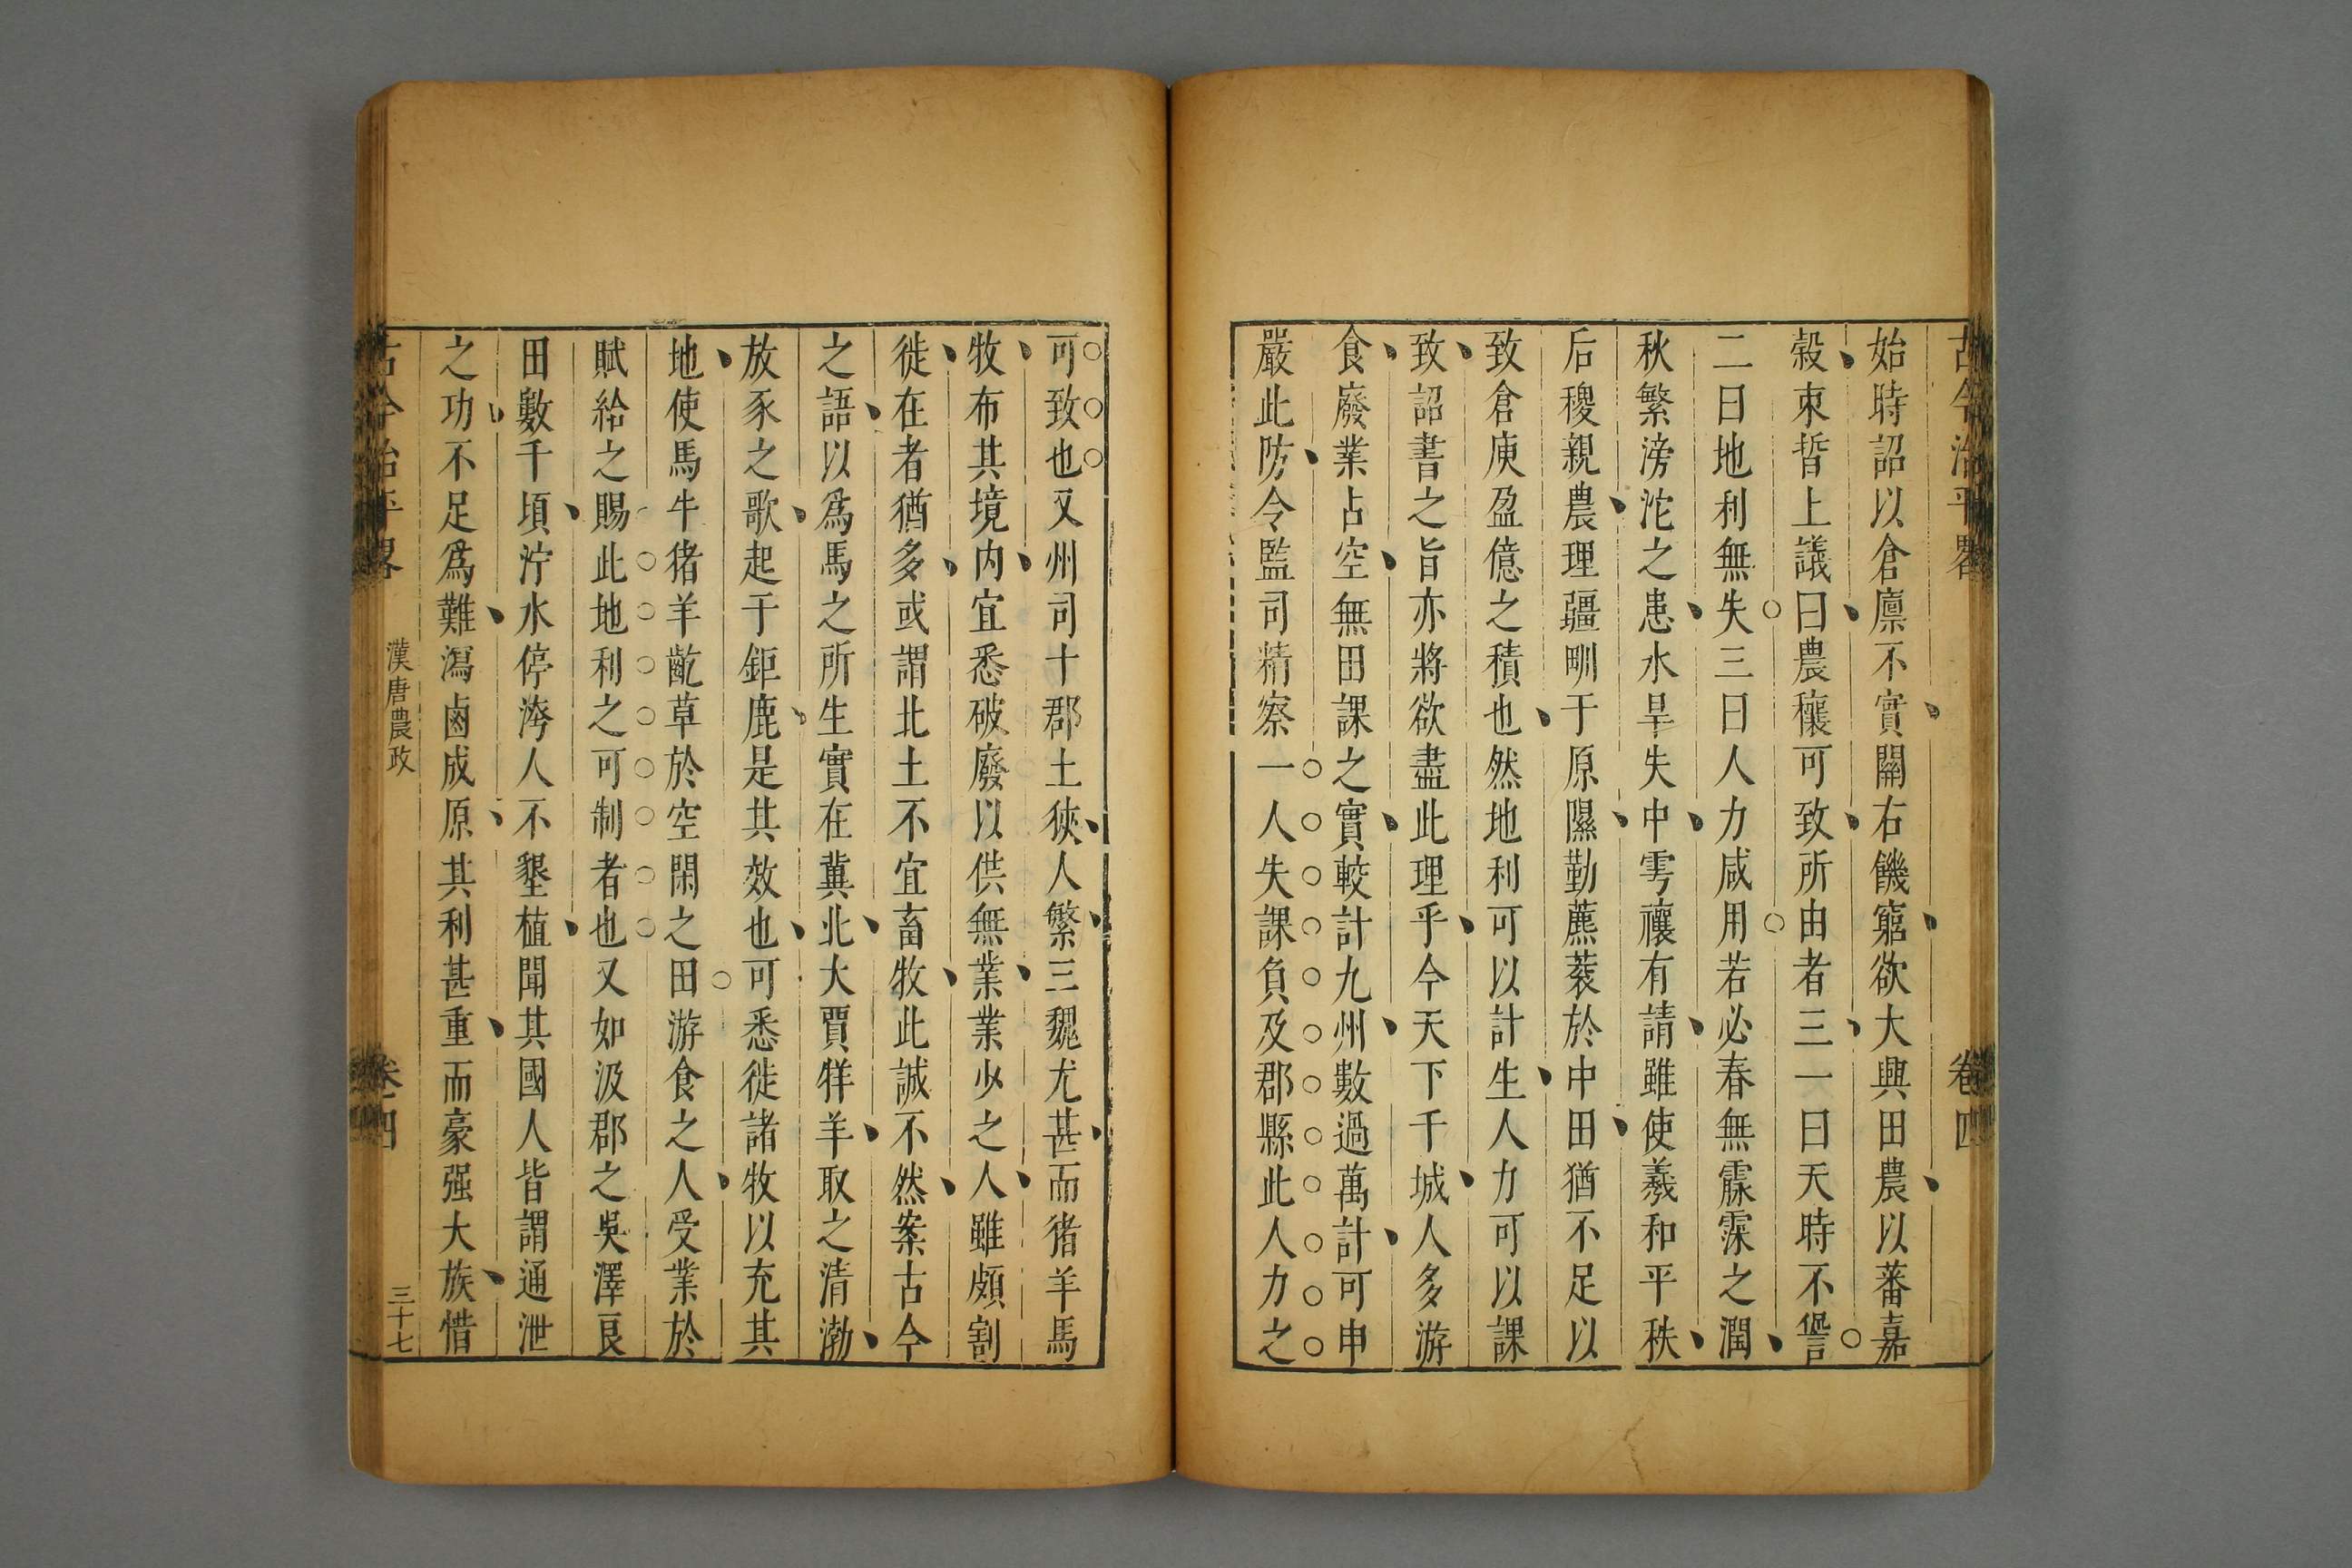 古今治平畧 卷四
始時詔以倉廪不實關右饑窮欲大興田農以蕃嘉
榖束晳上議曰農穰可致所由者三一曰天時不諐
二曰地利無失三曰人力咸用若必春無霡霂之潤
秋繁滂沱之患水旱失中雩禳有請雖使羲和平秩
后稷親農理疆甽于原隰勤藨蔉於中田猶不足以
致倉庾盈億之積也然地利可以計生人力可以課
致詔書之旨亦將欲盡此理乎今天下千城人多游
食廢業占空無田課之實較計九州數過萬計可申
嚴此防令監司精察一人失課負及郡縣此人力之
可致也又州司十郡土狹人繁三魏尤甚而猪羊馬
牧布其境內宜悉破廢以供無業業少之人雖頗割
徙在者猶多或謂北土不宜畜牧此誠不然案古今
之語以爲馬之所生實在冀北大賈牂羊取之清渤
放豕之歌起于鉅鹿是其效也可悉徙諸牧以充其
地使馬牛猪羊齕草於空閑之田游食之人受業於
賦給之賜此地利之可制者也又如汲郡之吳澤良
田數千頃泞水停洿人不墾植聞其國人皆謂通泄
之功不足爲難瀉鹵成原其利甚重而豪强大族惜
古今治平畧 漢唐農政 卷四 三十七